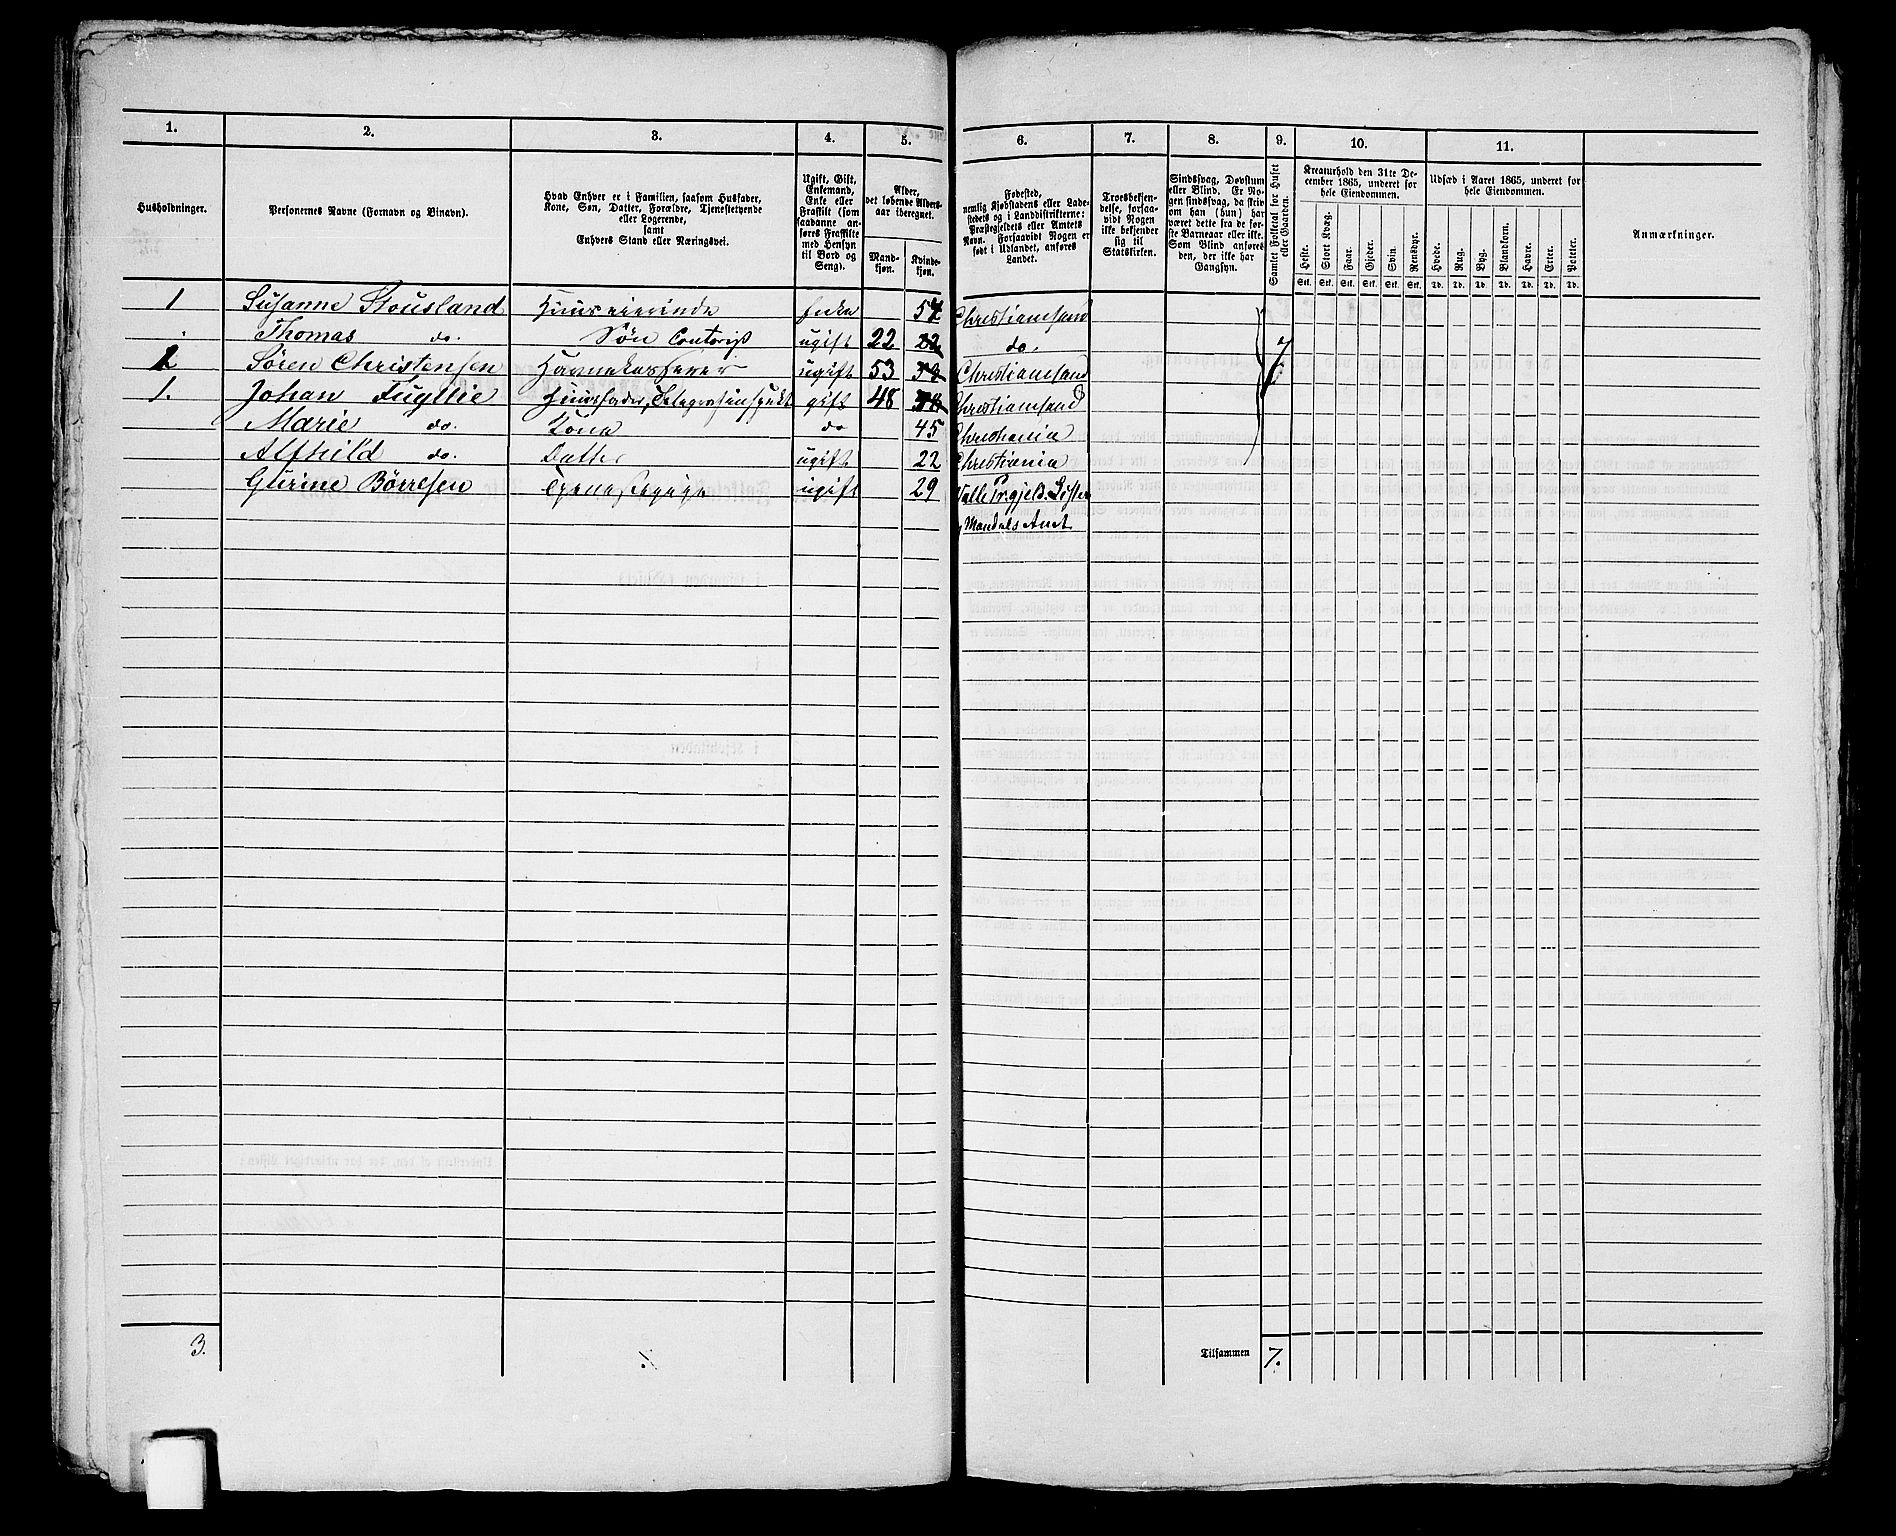 1. 2. 3. 4. 5. 6. 7. 8. 9. 10. 11.
Husholdninger.
Personernes Navne (Fornavn og Binavn).
Hvad Enhver er i Familien, saasom Husfader,
Kone, Søn, Datter, Forældre, Tjenestetyende
eller Logerende,
samt
Enhvers Stand eller Næringsvei.
Ugift, Gift,
Enkemand,
Enke eller
Fraskilt (som
saadanne an-
føres Fraskilte
med Hensyn
til Bord og
Seng).
Alder,
det løbende Alders-
aar iberegnet.
Mand-
kjøn.
Kvinde-
kjøn.
Fødested,
nemlig Kjøbstadens eller Lade-
stedets og i Landdistrikterne:
Præstegjeldets eller Amtets
Navn. Forsaavidt Nogen er
født i Udlandet, anføres
Landet.
Troesbekjen-
delse, forsaa-
vidt Nogen
ikke bekjender
sig til
Statskirken.
Sindssvag, Døvstum
eller Blind. Er No-
gen sindssvag, da skriv
om han (hun) har
været dette fra de før-
ste Barneaar eller ikke.
Som Blind anføres
den, der ikke har
Gangsyn.
Samlet Folketal for Huset
eller Gaarden.
Kreaturhold den 31te De-
cember 1865, underet for
hele Eiendommen.
Heste. Stort Kvæg. Faar. Gjeder. Svin. Rensdyr.
Stk. Stk. Stk. Stk. Stk. Stk.
Udsæd i Aaret 1865, underet for
hele Eiendommen.
Hvede. Rug. Byg. Blandkorn. Havre. Erter. Poteter.
Td. Td. Td. Td. Td. Td. Td.
Anmærkninger.
1 Susanne Stousland Huuseierinde Enke 57 Christiansand
Thomas do. Søn Contorist ugift 22 22 do. 7
1 Søren Christensen Havnekasserer ugift 53 Christiansand
1. Johan Huusfader, Telegrafinspekt gift 48 48 Christiansand
Marie do. Kone do 45 Christiania
Alfhild do. Datter ugift 22 Christiania
Gurine Børresen Tjenestepige ugift 29 Valle Pr.gjeld. Lister
y Mandals Amt
3. Tilsammen 7.